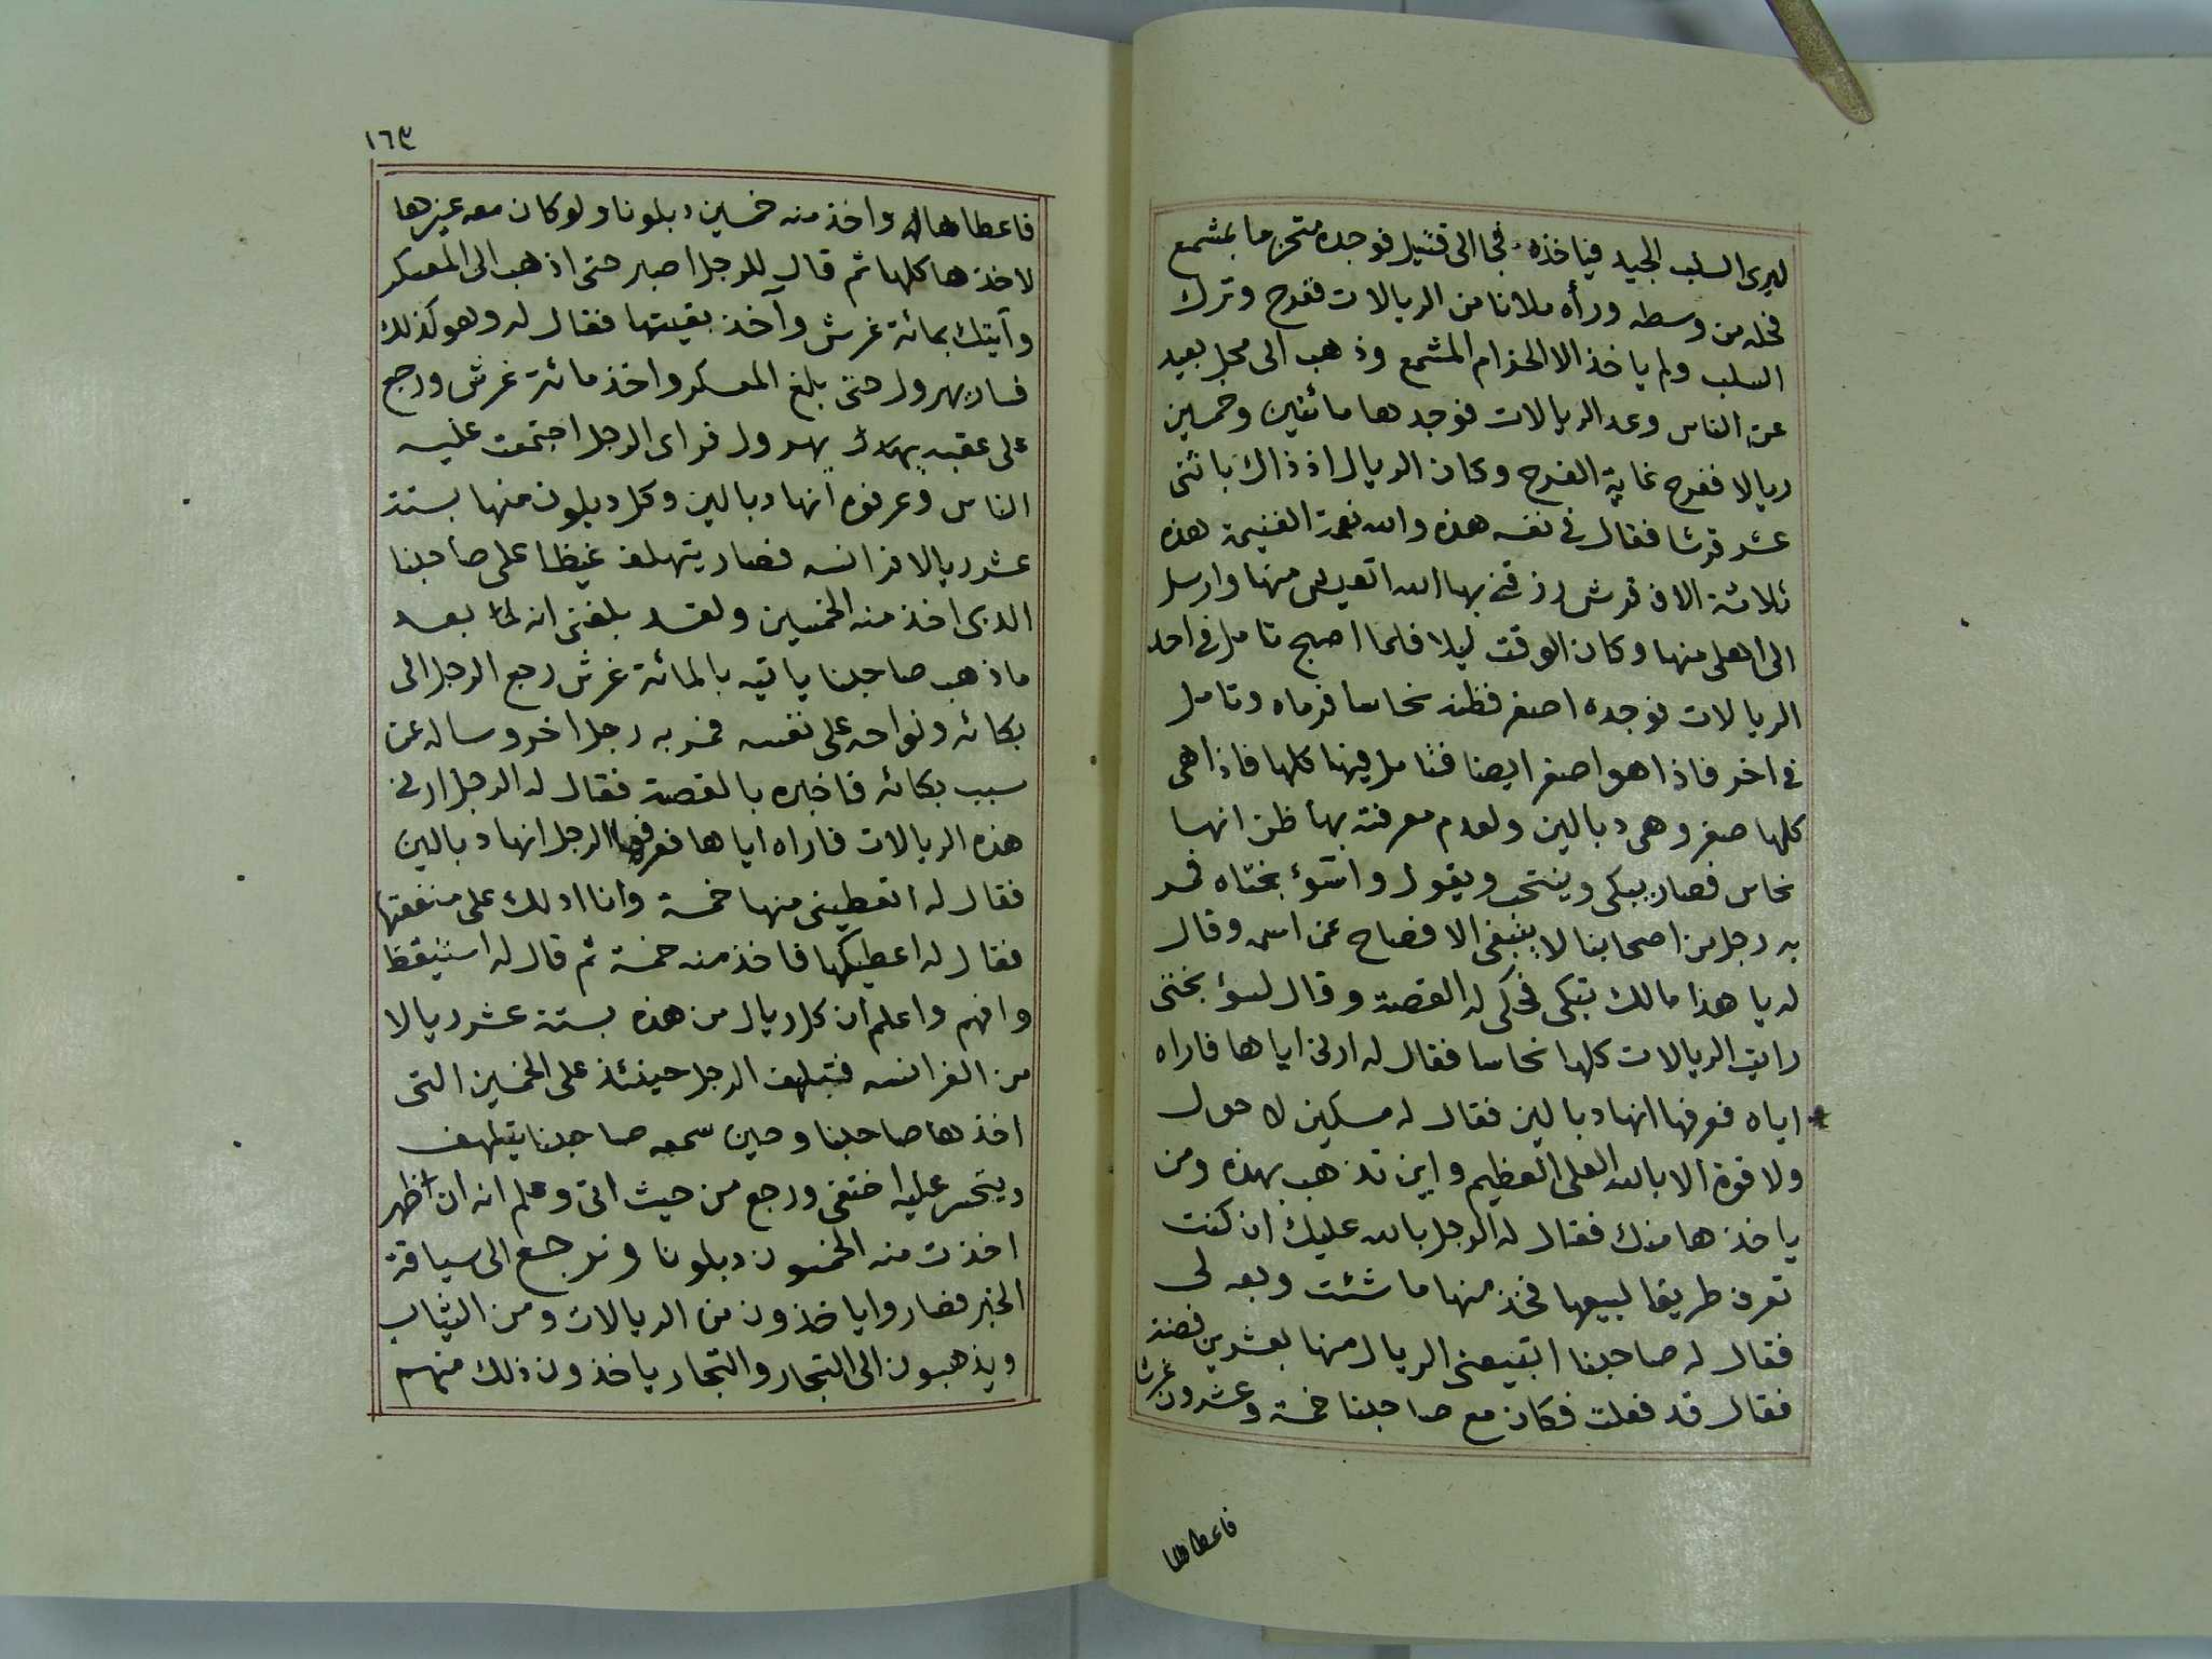 ليرى السلب الجيد فياخذه فجا الى قتيل فوجده متحزما بمشمع
فحله من وسطه ورأه ملانا من الريالات ففرح وترك
السلب ولم ياخذ الا الحزام المشمع وذهب الى محل بعيد
عن الناس وعد الريالات فوجدها مائتين وخمسين
ريالا ففرح غاية الفرح وكان الريال اذ ذاك باثنى
عشر قرشا فقال فى نفسه هذه والله نعمة الغنيمة هذه
ثلاثة الاف قرش رزقنى بها الله اتعيش منها وارسل
الى اهلى منها وكان الوقت ليلا فلما اصبح تامل فى احد
الريالات فوجده اصفر فظنه نحاسا فرماه وتامل
فى اخر فاذا هو اصفر ايضا فتامل فيها كلها فاذا هى
كلها صفر وهى دبالين ولعدم معرفته بها ظن انها
نحاس فصار يبكى وينتحب ويقول واسوء بختاه فمر
به رجل من اصحابنا لا ينبغى الافصاح عن اسمه وقال
له يا هذا مالك تبكى فحكى له القصة وقال لسوء بختى
رايت الريالات كلها نحاسا فقال له ارنى اياها فاراه
اياه فعرفها انها دبالين فقال له مسكين لا حول
ولا قوة الا بالله العلى العظيم واين تذهب بهذه ومن
ياخذها منك فقال له الرجل بالله عليك ان كنت
تعرف طريقا لبيعها فخذ منها ما شئت وبعه لى
فقال له صاحبنا اتبيعنى الريال منها بعشرين فضة
فقال قد فعلت فكان مع صاحبنا خمسة وعشرون غرشا
فاعطاها
١٦٣
فاعطاها له واخذ منه خمسين دبلونا ولو كان معه غيرها
لاخذها كلها ثم قال للرجل اصبر حتى اذهب الى المعسكر
وآيتك بمائة غرش وآخذ بقيتها فقال له وهو كذلك
فسار يهرول حتى بلغ المعسكر واخذ مائة غرش ورجع
على عقبه يهرول فراى الرجل اجتمعت عليه
الناس وعرفوه انها دبالين وكل دبلون منها بستة
عشر ريالا فرانسه فصار يتهلف غيظا على صاحبنا
الذى اخذ منه الخمسين ولقد بلغنى انه لما بعد
ما ذهب صاحبنا ياتيه بالمائة غرش رجع الرجل الى
بكائه ونواحه على نفسه فمر به رجل اخر وساله عن
سبب بكائه فاخبره بالقصة فقال له الرجل ارنى
هذه الريالات فاراه اياها فعرفها الرجل انها دبالين
فقال له اتعطينى منها خمسة وانا ادلك على منفعتها
فقال له اعطيكها فاخذ منه خمسة ثم قال له استيقظ
وافهم واعلم ان كل ريال من هذه بستة عشر ريالا
من الفرانسه فتلهف الرجل حينئذ على الخمسين التى
اخذها صاحبنا وحين سمعه صاحبنا يتلهف
ويتحسر عليه اختفى ورجع من حيث اتى وعلم انه ان ظهر
اخذت منه الخمسون دبلونا ونرجع الى سياقة
الخبر فصاروا ياخذون من الريالات ومن الثياب
ويذهبون الى التجار والتجار ياخذون ذلك منهم